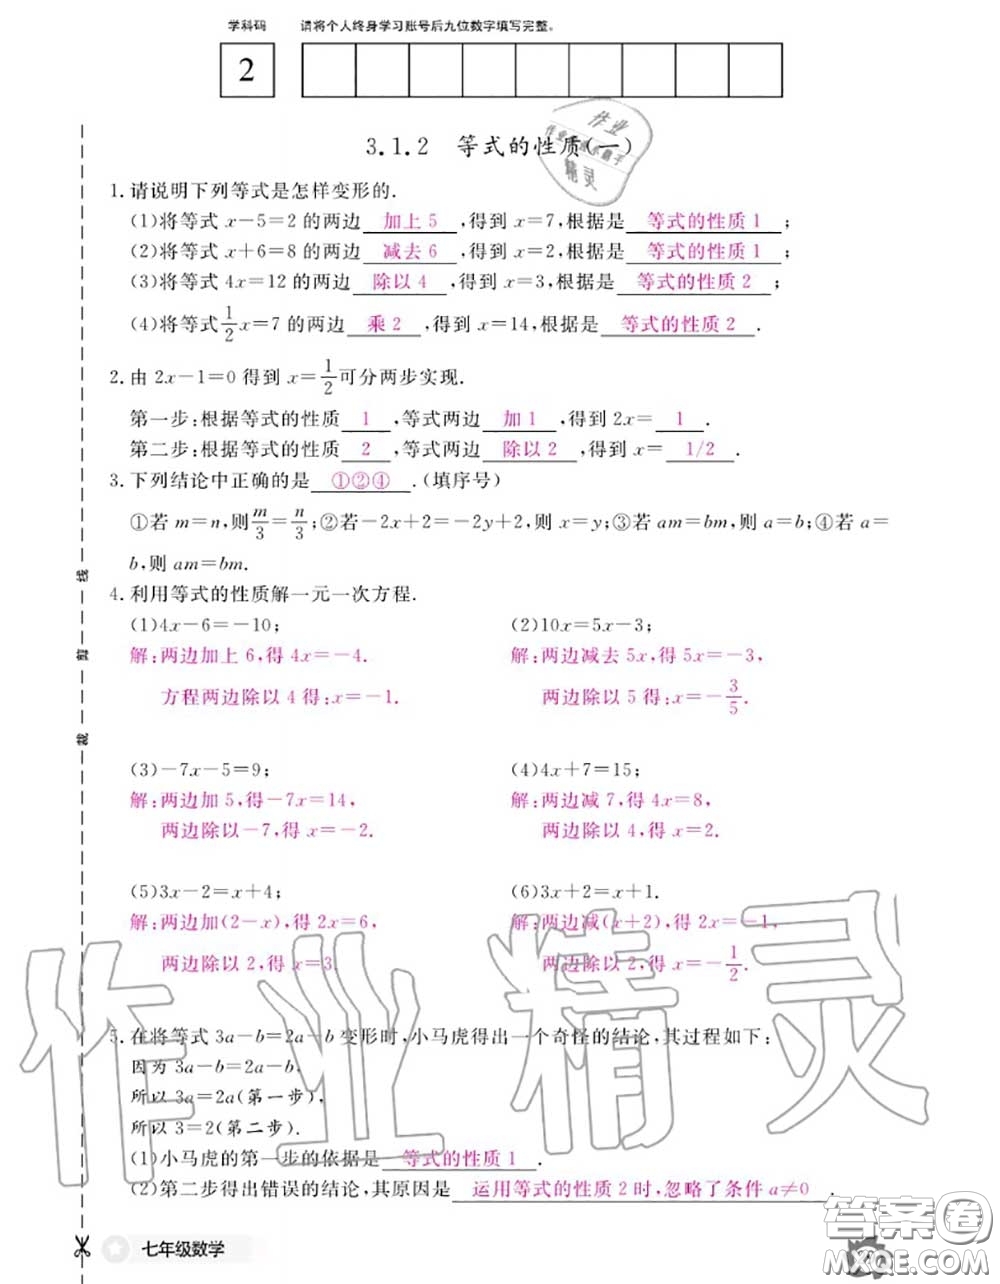 学科码 请将个人终身学习账号后九位数字填写完整。
2
3.1.2 等式的性质(一)
1.请说明下列等式是怎样变形的.
(1)将等式 x-5=2 的两边 加上 5 ,得到 x=7,根据是 等式的性质 1 ;
(2)将等式 x+6=8 的两边 减去 6 ,得到 x=2,根据是 等式的性质 1 ;
(3)将等式 4x=12 的两边 除以 4 ,得到 x=3,根据是 等式的性质 2 ;
(4)将等式 1/2 x=7 的两边 乘 2 ,得到 x=14,根据是 等式的性质 2 .
2.由 2x-1=0 得到 x=1/2 可分两步实现.
第一步:根据等式的性质 1 ,等式两边 加 1 ,得到 2x= 1 .
第二步:根据等式的性质 2 ,等式两边 除以 2 ,得到 x= 1/2 .
3.下列结论中正确的是 ①②④ .(填序号)
①若 m=n,则 m/3=n/3;②若-2x+2=-2y+2,则 x=y;③若 am=bm,则 a=b;④若 a=
b,则 am=bm.
4.利用等式的性质解一元一次方程.
(1)4x-6=-10; (2)10x=5x-3;
解:两边加上 6,得 4x=-4. 解:两边减去 5x,得 5x=-3,
方程两边除以 4 得:x=-1. 两边除以 5 得:x=-3/5.
(3)-7x-5=9; (4)4x+7=15;
解:两边加 5,得-7x=14, 解:两边减 7,得 4x=8,
两边除以-7,得 x=-2. 两边除以 4,得 x=2.
(5)3x-2=x+4; (6)3x+2=x+1.
解:两边加(2-x),得 2x=6, 解:两边减(x+2),得 2x=-1,
两边除以 2,得 x=3. 两边除以 2,得 x=-1/2.
5.在将等式 3a-b=2a-b 变形时,小马虎得出一个奇怪的结论,其过程如下:
因为 3a-b=2a-b,
所以 3a=2a(第一步),
所以 3=2(第二步).
(1)小马虎的第一步的依据是 等式的性质 1 .
(2)第二步得出错误的结论,其原因是 运用等式的性质 2 时,忽略了条件 a≠0 .
裁 剪 线
七年级数学
作业精灵
作业
精灵
答案卷